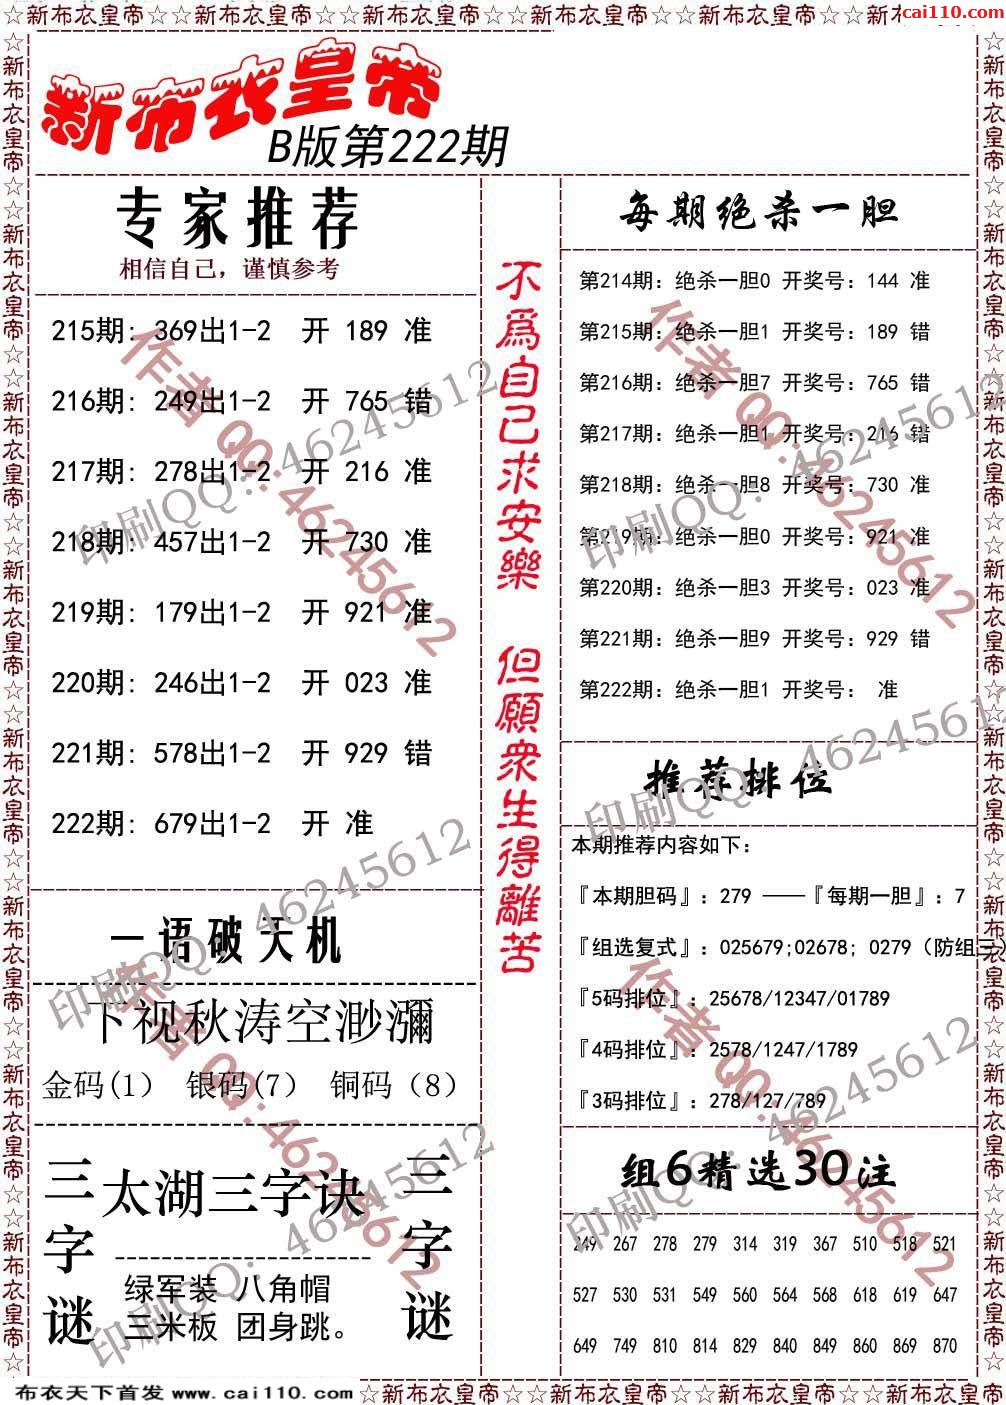 ☆新布衣皇帝☆☆新布衣皇帝☆☆新布衣皇帝☆☆新布衣皇帝☆☆新布衣皇帝☆☆新
cai110.com
新布衣皇帝
B版第222期
专家推荐
相信自己，谨慎参考
215期: 369出1-2 开 189 准
216期: 249出1-2 开 765 错
217期: 278出1-2 开 216 准
218期: 457出1-2 开 730 准
219期: 179出1-2 开 921 准
220期: 246出1-2 开 023 准
221期: 578出1-2 开 929 错
222期: 679出1-2 开 准
一语破天机
下视秋涛空渺瀰
金码(1) 银码(7) 铜码（8）
三字谜
太湖三字诀
绿军装 八角帽
三米板 团身跳。
三字谜
不爲自己求安樂
但願衆生得離苦
每期绝杀一胆
第214期: 绝杀一胆0 开奖号: 144 准
第215期: 绝杀一胆1 开奖号: 189 错
第216期: 绝杀一胆7 开奖号: 765 错
第217期: 绝杀一胆1 开奖号: 216 错
第218期: 绝杀一胆8 开奖号: 730 准
第219期: 绝杀一胆0 开奖号: 921 准
第220期: 绝杀一胆3 开奖号: 023 准
第221期: 绝杀一胆9 开奖号: 929 错
第222期: 绝杀一胆1 开奖号: 准
推荐排位
本期推荐内容如下:
『本期胆码』: 279 ——『每期一胆』: 7
『组选复式』: 025679;02678; 0279（防组三）
『5码排位』: 25678/12347/01789
『4码排位』: 2578/1247/1789
『3码排位』: 278/127/789
组6精选30注
249 267 278 279 314 319 367 510 518 521
527 530 531 549 560 564 568 618 619 647
649 749 810 814 829 840 849 860 869 870
作者 QQ: 46245612
印刷QQ: 46245612
作者 QQ: 46245612
印刷QQ: 46245612
印刷QQ: 46245612
印刷QQ: 46245612
作者 QQ: 46245612
作者 QQ: 46245612
印刷QQ: 46245612
印刷QQ: 46245612
☆新布衣皇帝☆☆新布衣皇帝☆☆新布衣皇帝☆☆新布衣皇帝☆☆新布衣皇帝☆☆新布衣皇帝☆☆新布衣皇帝☆☆新布衣皇帝☆
☆新布衣皇帝☆☆新布衣皇帝☆☆新布衣皇帝☆☆新布衣皇帝☆☆新布衣皇帝☆☆新布衣皇帝☆☆新布衣皇帝☆☆新布衣皇帝☆
布衣天下首发 www.cai110.com
☆新布衣皇帝☆☆新布衣皇帝☆☆新布衣皇帝☆☆新布衣皇帝☆